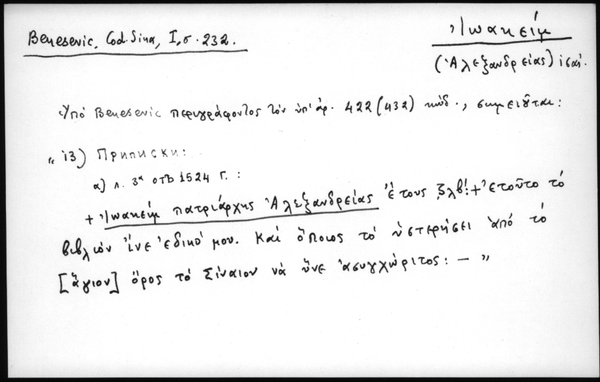 Benesevic, Cod. Sina, I, σ. 232.
Ἰωακείμ
(Ἀλεξανδρείας) ἰσαπ.
Ὑπό Benesevic περιγράφοντος τόν ὑπ' ἀρ. 422 (432) κώδ., σημειοῦται:
"13) Приписки:
α) л. 3α отъ 1524 г.:
+ Ἰωακείμ πατριάρχης Ἀλεξανδρείας ἔτους ζλβ! + ἐτοῦτο τό
βιβλιόν ἶνε ἐδικό μου. Καί ὅποιος τό ὑστερήσει ἀπό τό
[ἅγιον] ὄρος τό Σίναιον νά ἦνε ἀσυγχώριτος: — "